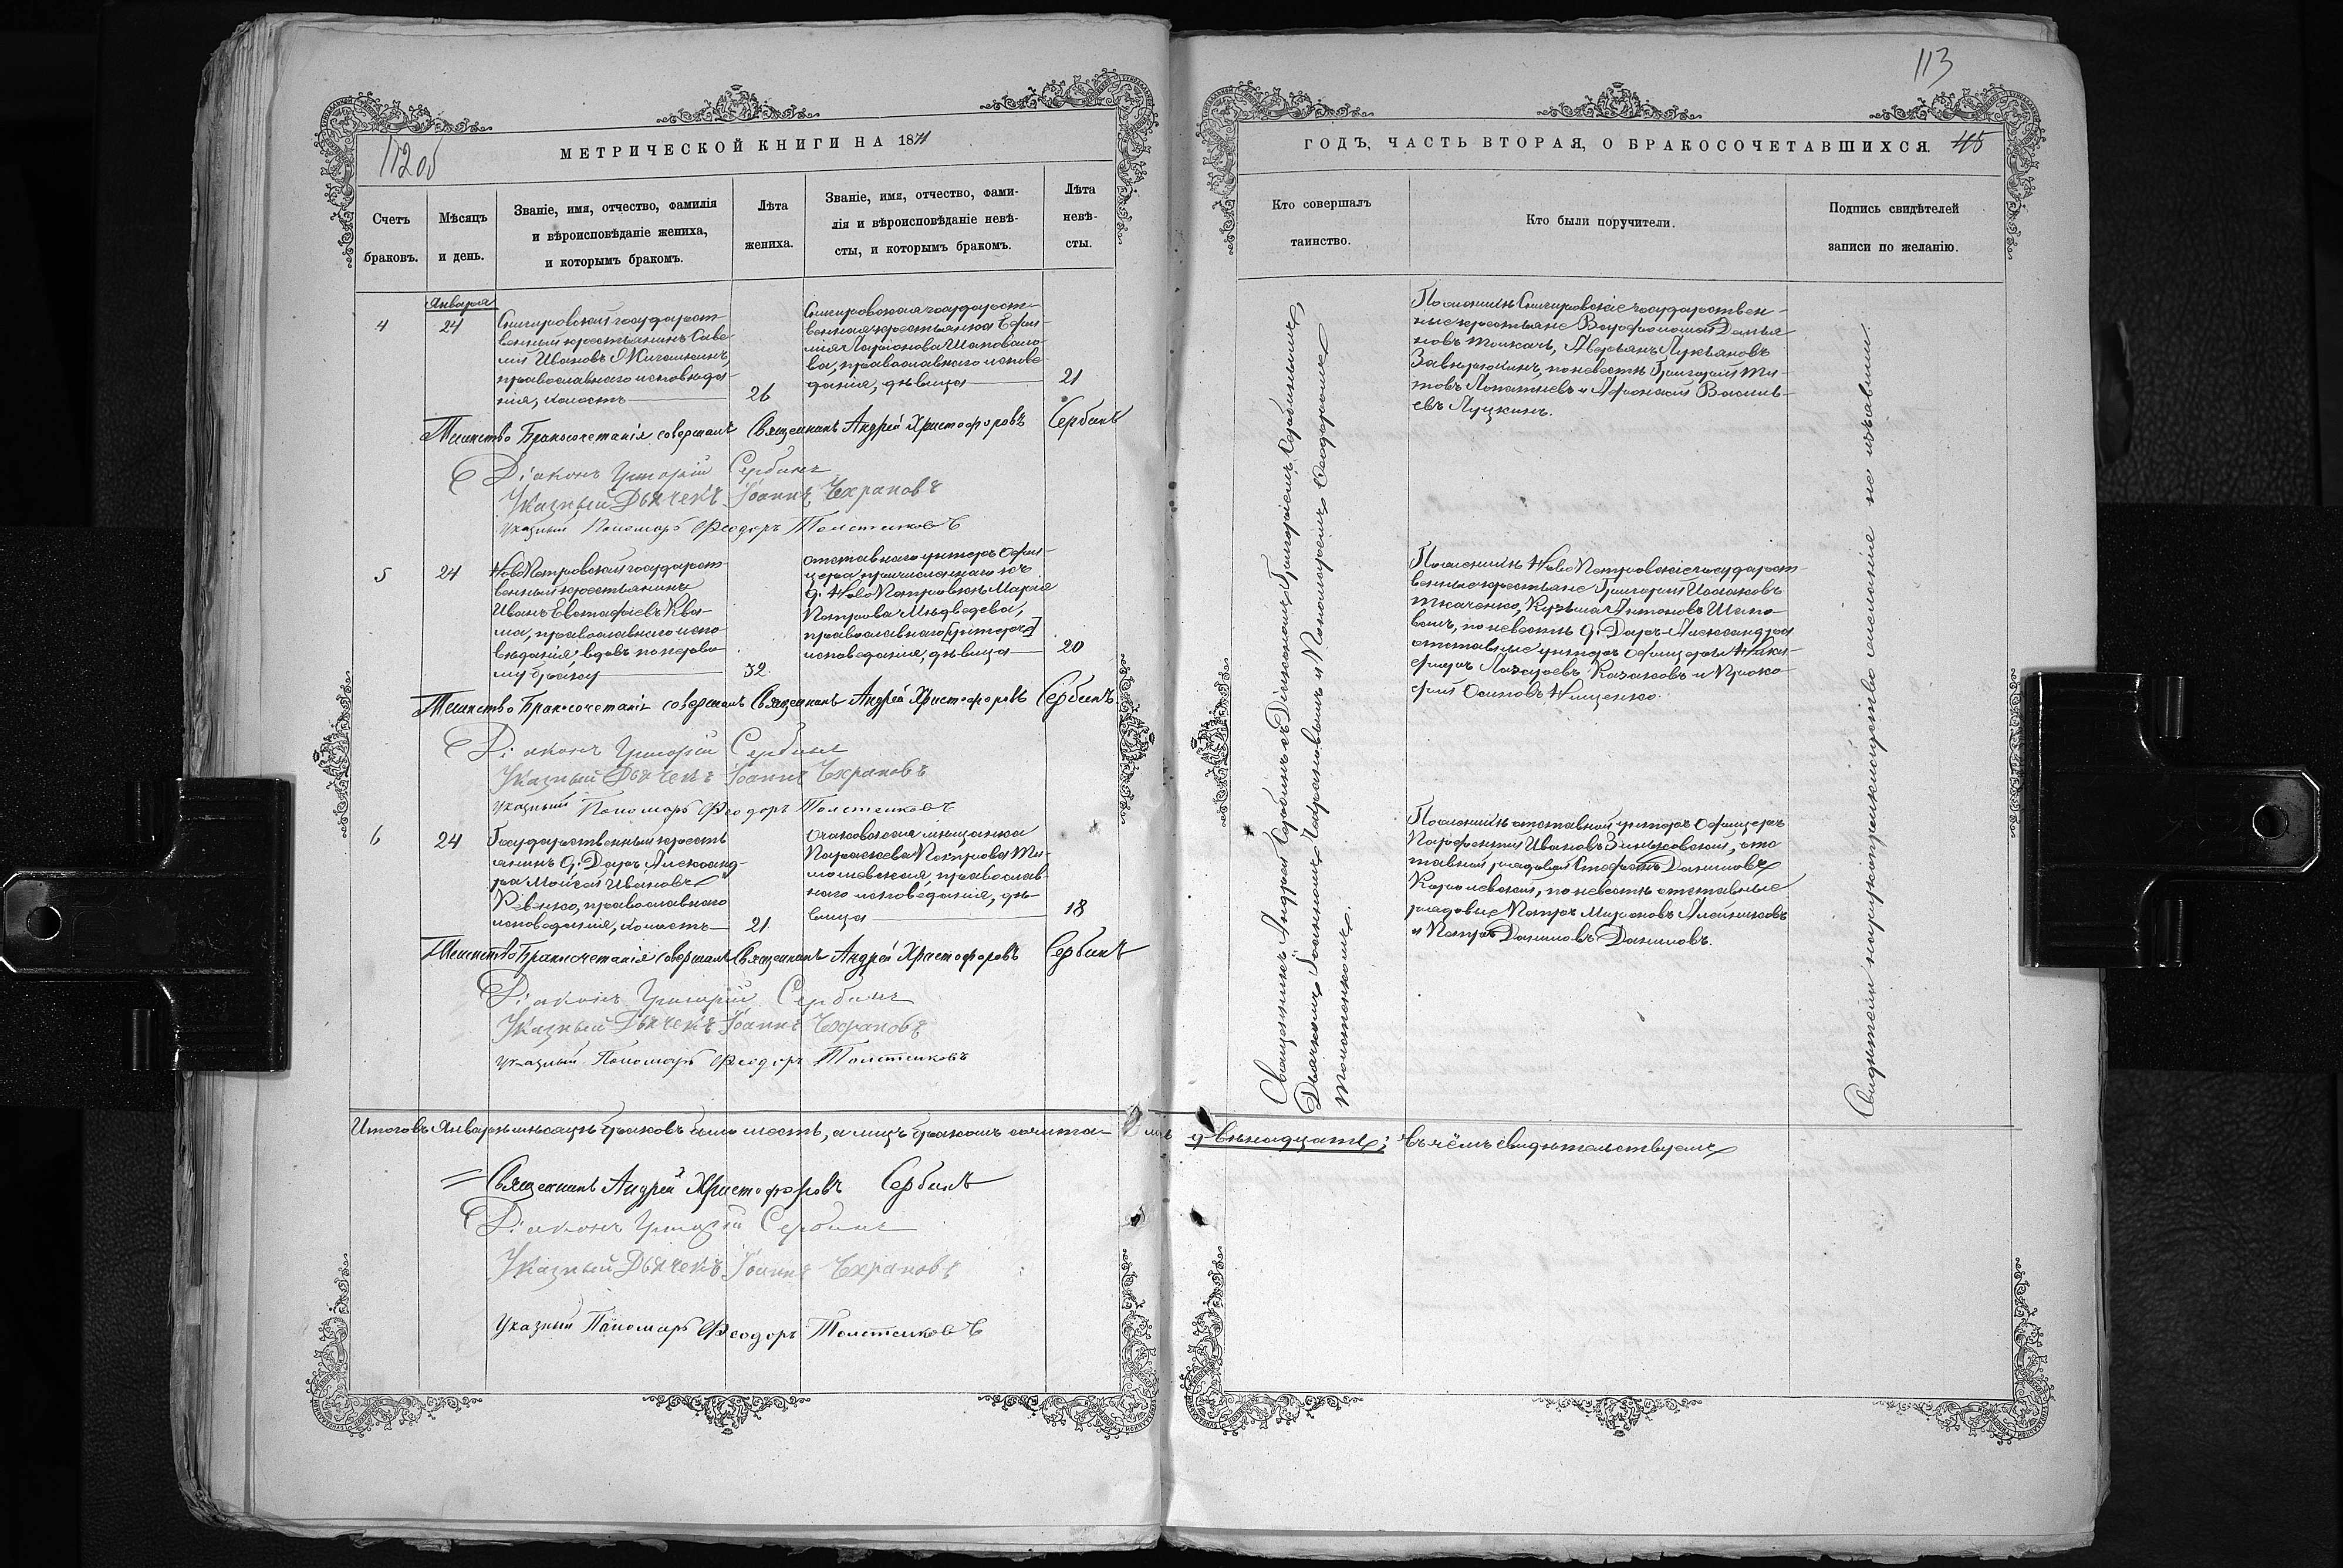 11205
МЕТРИЧЕСКОЙ КНИГИ НА 1871
Счетъ браковъ.
Мѣсяцъ и день.
Званіе, имя, отчество, фамилія
и вѣроисповѣданіе жениха,
и которымъ бракомъ.
Лѣта жениха.
Званіе, имя, отчество, фами-
лія и вѣроисповѣданіе невѣ-
сты, и которымъ бракомъ.
Лѣта невѣ-
сты.
Января
4
24
Снигировскій государст-
венный крестьянинъ Саве-
лій Ивановъ
православнаго исповѣда-
нія, холостъ
26
Снигировская государст-
венная крестьянка Ефи-
мія Ларіонова Шаповало-
ва, православнаго исповѣ-
данія, дѣвица
21
Таинство Бракосочетанія совершалъ Священникъ Андрей Христофоровъ Сербинъ
Діаконъ Григорій Сербинъ
Указный Дьячекъ Іоаннъ Чехрановъ
Указный Пономарь Феодоръ Толстенковъ
5
24
НовоПетровскій государст-
венный крестьянинъ
Иванъ Евстафіевъ Ква-
ша, православнаго испо-
вѣданія, вдовъ по перво-
му браку
32
отставнаго унтеръ Офи-
цера причисленнаго къ
д. НовоПетровкѣ Марія
Петрова Медведева,
православнаго [унтеръ]
исповеданія, дѣвица
20
Таинство Бракосочетанія совершалъ Священникъ Андрей Христофоровъ Сербинъ
Діаконъ Григорій Сербинъ
Указный Дьячекъ Іоаннъ Чехрановъ
Указный Пономарь Феодоръ Толстенковъ
6
24
Государственный кресть-
янинъ д. Даръ-Александ-
ра Мойсей Ивановъ
православнаго
исповеданія, холостъ
21
Очаковская мещанка
Параскева Петрова
православ-
наго исповеданія, дѣ-
вица
18
Таинство Бракосочетанія совершалъ Священникъ Андрей Христофоровъ Сербинъ
Діаконъ Григорій Сербинъ
Указный Дьячекъ Іоаннъ Чехрановъ
Указный Пономарь Феодоръ Толстенковъ
Итого въ Январѣ мѣсяцѣ браковъ было шесть, а лицъ бракомъ сочета-
Священникъ Андрей Христофоровъ Сербинъ
Діаконъ Григорій Сербинъ
Указный Дьячекъ Іоаннъ Чехрановъ
Указный Пономарь Феодоръ Толстенковъ
113
ГОДЪ, ЧАСТЬ ВТОРАЯ, О БРАКОСОЧЕТАВШИХСЯ.
Кто совершалъ
таинство.
Кто были поручители.
Подпись свидѣтелей
записи по желанію.
Священникъ Андрей Сербинъ съ Діакономъ Григоріемъ Сербинымъ,
Дьячкомъ Іоанномъ Чехрановымъ и Пономаремъ Феодоромъ
Толстенкомъ.
По женихѣ Снигировскіе государствен-
ные крестьяне Варфоломей Демья-
новъ Ткачъ, Аверьянъ Лукьяновъ
Завирюхинъ, по невестѣ Григорій Ти-
товъ Лопатневъ и Афанасій Василь-
евъ Луцкинъ.
По женихѣ НовоПетровскіе государст-
венные крестьяне Григорій Исааковъ
Ткаченко, Кузьма Антоновъ Шапо-
валъ, по невестѣ д. Даръ-Александра
отставные унтеръ Офицеры Ники-
форъ Лазаревъ Казаковъ и Проко-
фій Осиповъ Нищенко.
По женихѣ отставной унтеръ Офицеръ
Парфентій Ивановъ Зиньковскій, отс-
тавной рядовой Стефанъ Даниловъ
Каролевскій, по невестѣ отставные
рядовые Петръ Мироновъ Алейниковъ
и Петръ Даниловъ Даниловъ.
Свидѣтели на рукоприкладство желанія не изъявили.
двѣнадцать; въ чёмъ свидѣтельствуемъ